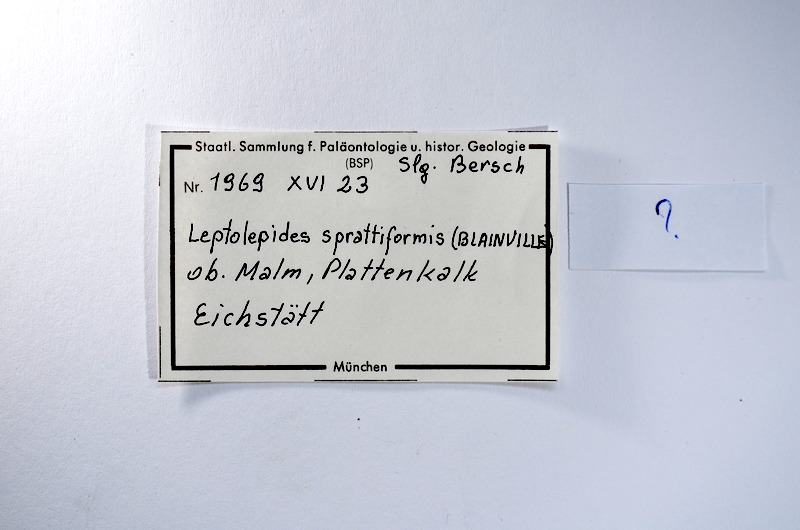 Staatl. Sammlung f. Paläontologie u. histor. Geologie
(BSP) Slg. Bersch
Nr. 1969 XVI 23
Leptolepides sprattiformis (BLAINVILLE)
ob. Malm, Plattenkalk
Eichstätt
München
?